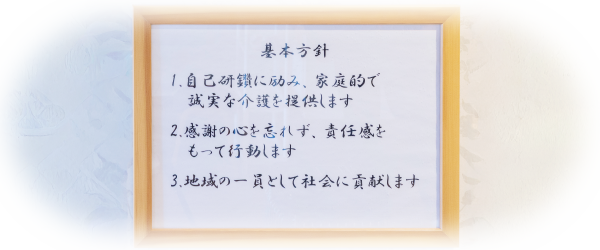 基本方針
1.自己研鑽に励み、家庭的で
誠実な介護を提供します
2.感謝の心を忘れず、責任感を
もって行動します
3.地域の一員として社会に貢献します